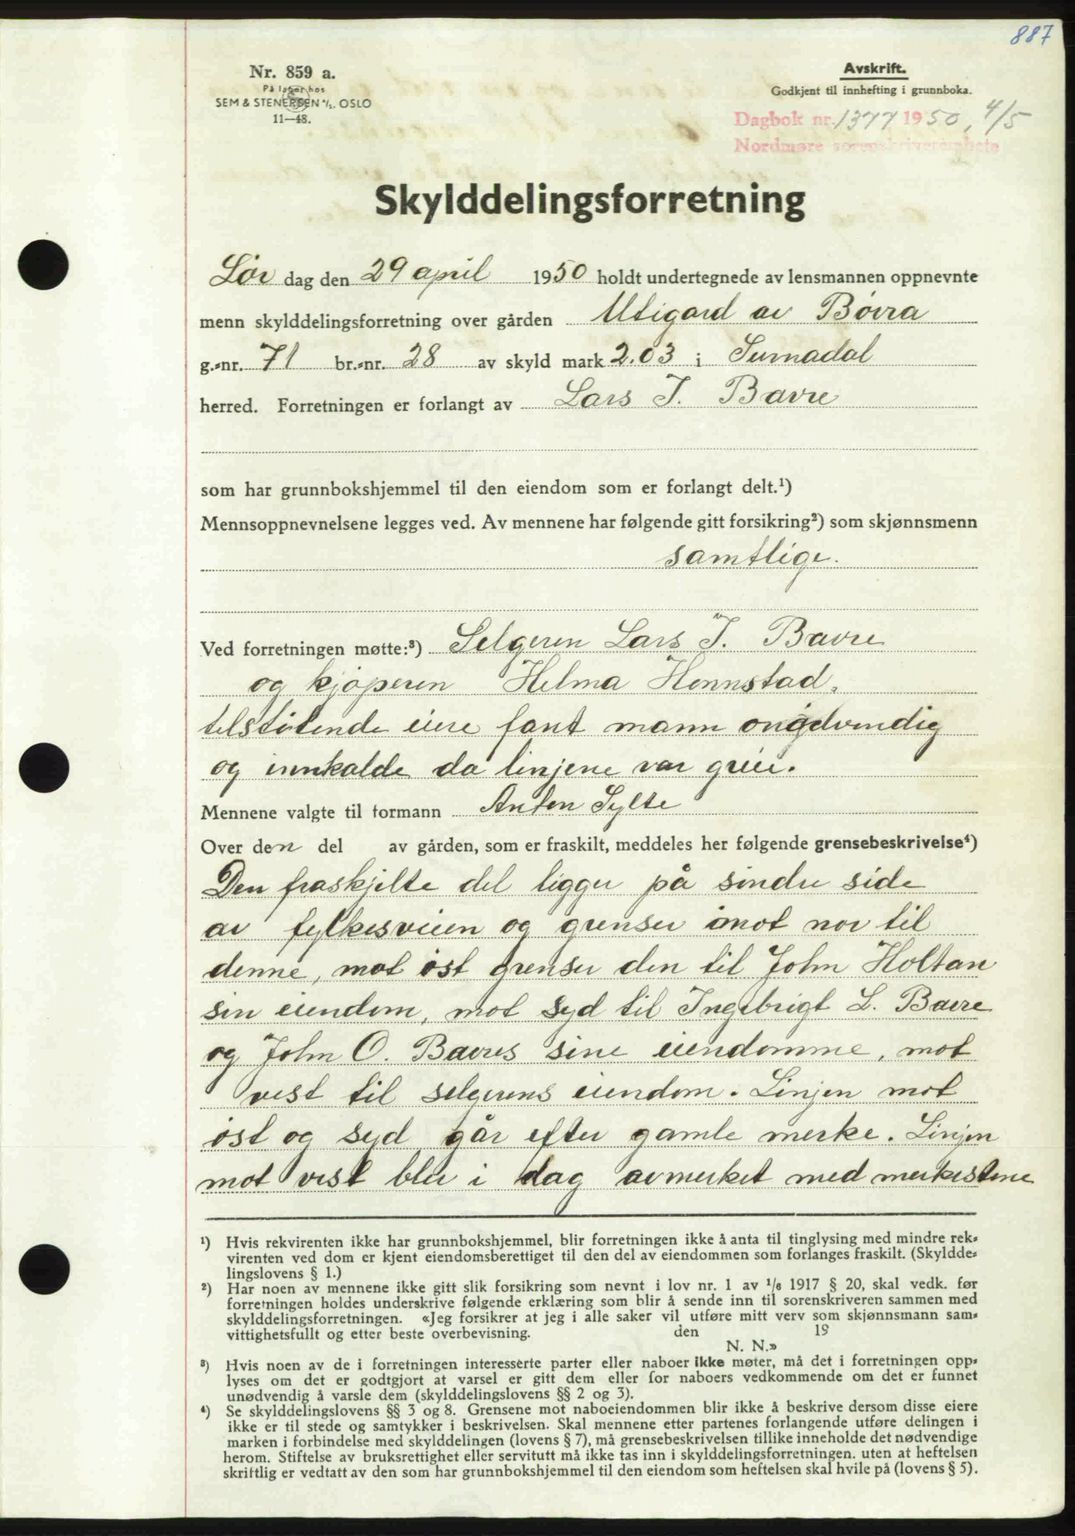 887
Nr. 859 a.
På lager hos
SEM & STENERSEN A/S. OSLO
11—48.
Avskrift.
Godkjent til innhefting i grunnboka.
Dagbok nr. 1377 1950, 4/5
Nordmøre sorenskriverembete
Skylddelingsforretning
Lør dag den 29 april 1950 holdt undertegnede av lensmannen oppnevnte
menn skylddelingsforretning over gården Utigard av Bøvra
g.-nr. 71 br.-nr. 28 av skyld mark 2.03 i Surnadal
herred. Forretningen er forlangt av Lars J. Bavre
som har grunnbokshjemmel til den eiendom som er forlangt delt.¹)
Mennsoppnevnelsene legges ved. Av mennene har følgende gitt forsikring²) som skjønnsmenn
samtlige.
Ved forretningen møtte:³) Selgeren Lars J. Bavre
og kjøperen Helma Hennstad,
tilstøtende eiere fant mann
og innkalde da linjene var greie.
Mennene valgte til formann Anton Sylte
Over den del av gården, som er fraskilt, meddeles her følgende grensebeskrivelse⁴)
Den fraskjelte del ligger på søndre side
av fylkesveien og grenser imot nor til
denne, mot øst grenser den til John Holtan
sin eiendom, mot syd til Ingebrigt L. Bavre
og John O. Bavres sine eiendomme, mot
vest til selgerens eiendom. Linjen mot
øst og syd går efter gamle merke. Linjen
mot vest blev i dag avmerket med merkestene
¹) Hvis rekvirenten ikke har grunnbokshjemmel, blir forretningen ikke å anta til tinglysing med mindre rek-
virenten ved dom er kjent eiendomsberettiget til den del av eiendommen som forlanges fraskilt. (Skyldde-
lingslovens § 1.)
²) Har noen av mennene ikke gitt slik forsikring som nevnt i lov nr. 1 av 1/6 1917 § 20, skal vedk. før
forretningen holdes underskrive følgende erklæring som blir å sende inn til sorenskriveren sammen med
skylddelingsforretningen. «Jeg forsikrer at jeg i alle saker vil utføre mitt verv som skjønnsmann sam-
vittighetsfullt og etter beste overbevisning. den 19
N. N.»
³) Hvis noen av de i forretningen interesserte parter eller naboer ikke møter, må det i forretningen opp-
lyses om det er godtgjort at varsel er gitt dem eller for naboers vedkommende om det er funnet
unødvendig å varsle dem (skylddelingslovens §§ 2 og 3).
⁴) Se skylddelingslovens §§ 3 og 8. Grensene mot naboeiendommen blir ikke å beskrive dersom disse eiere
ikke er til stede og samtykker i beskrivelsen. Skal mennene etter partenes forlangende utføre delingen i
marken i forbindelse med skylddelingen (lovens § 7), må grensebeskrivelsen tillike inneholde det nødvendige
herom. Stiftelse av bruksrettighet eller servitutt må ikke tas inn i skylddelingsforretningen. uten at heftelsen
skriftlig er vedtatt av den som har grunnbokshjemmel til den eiendom som heftelsen skal hvile på (lovens § 5).